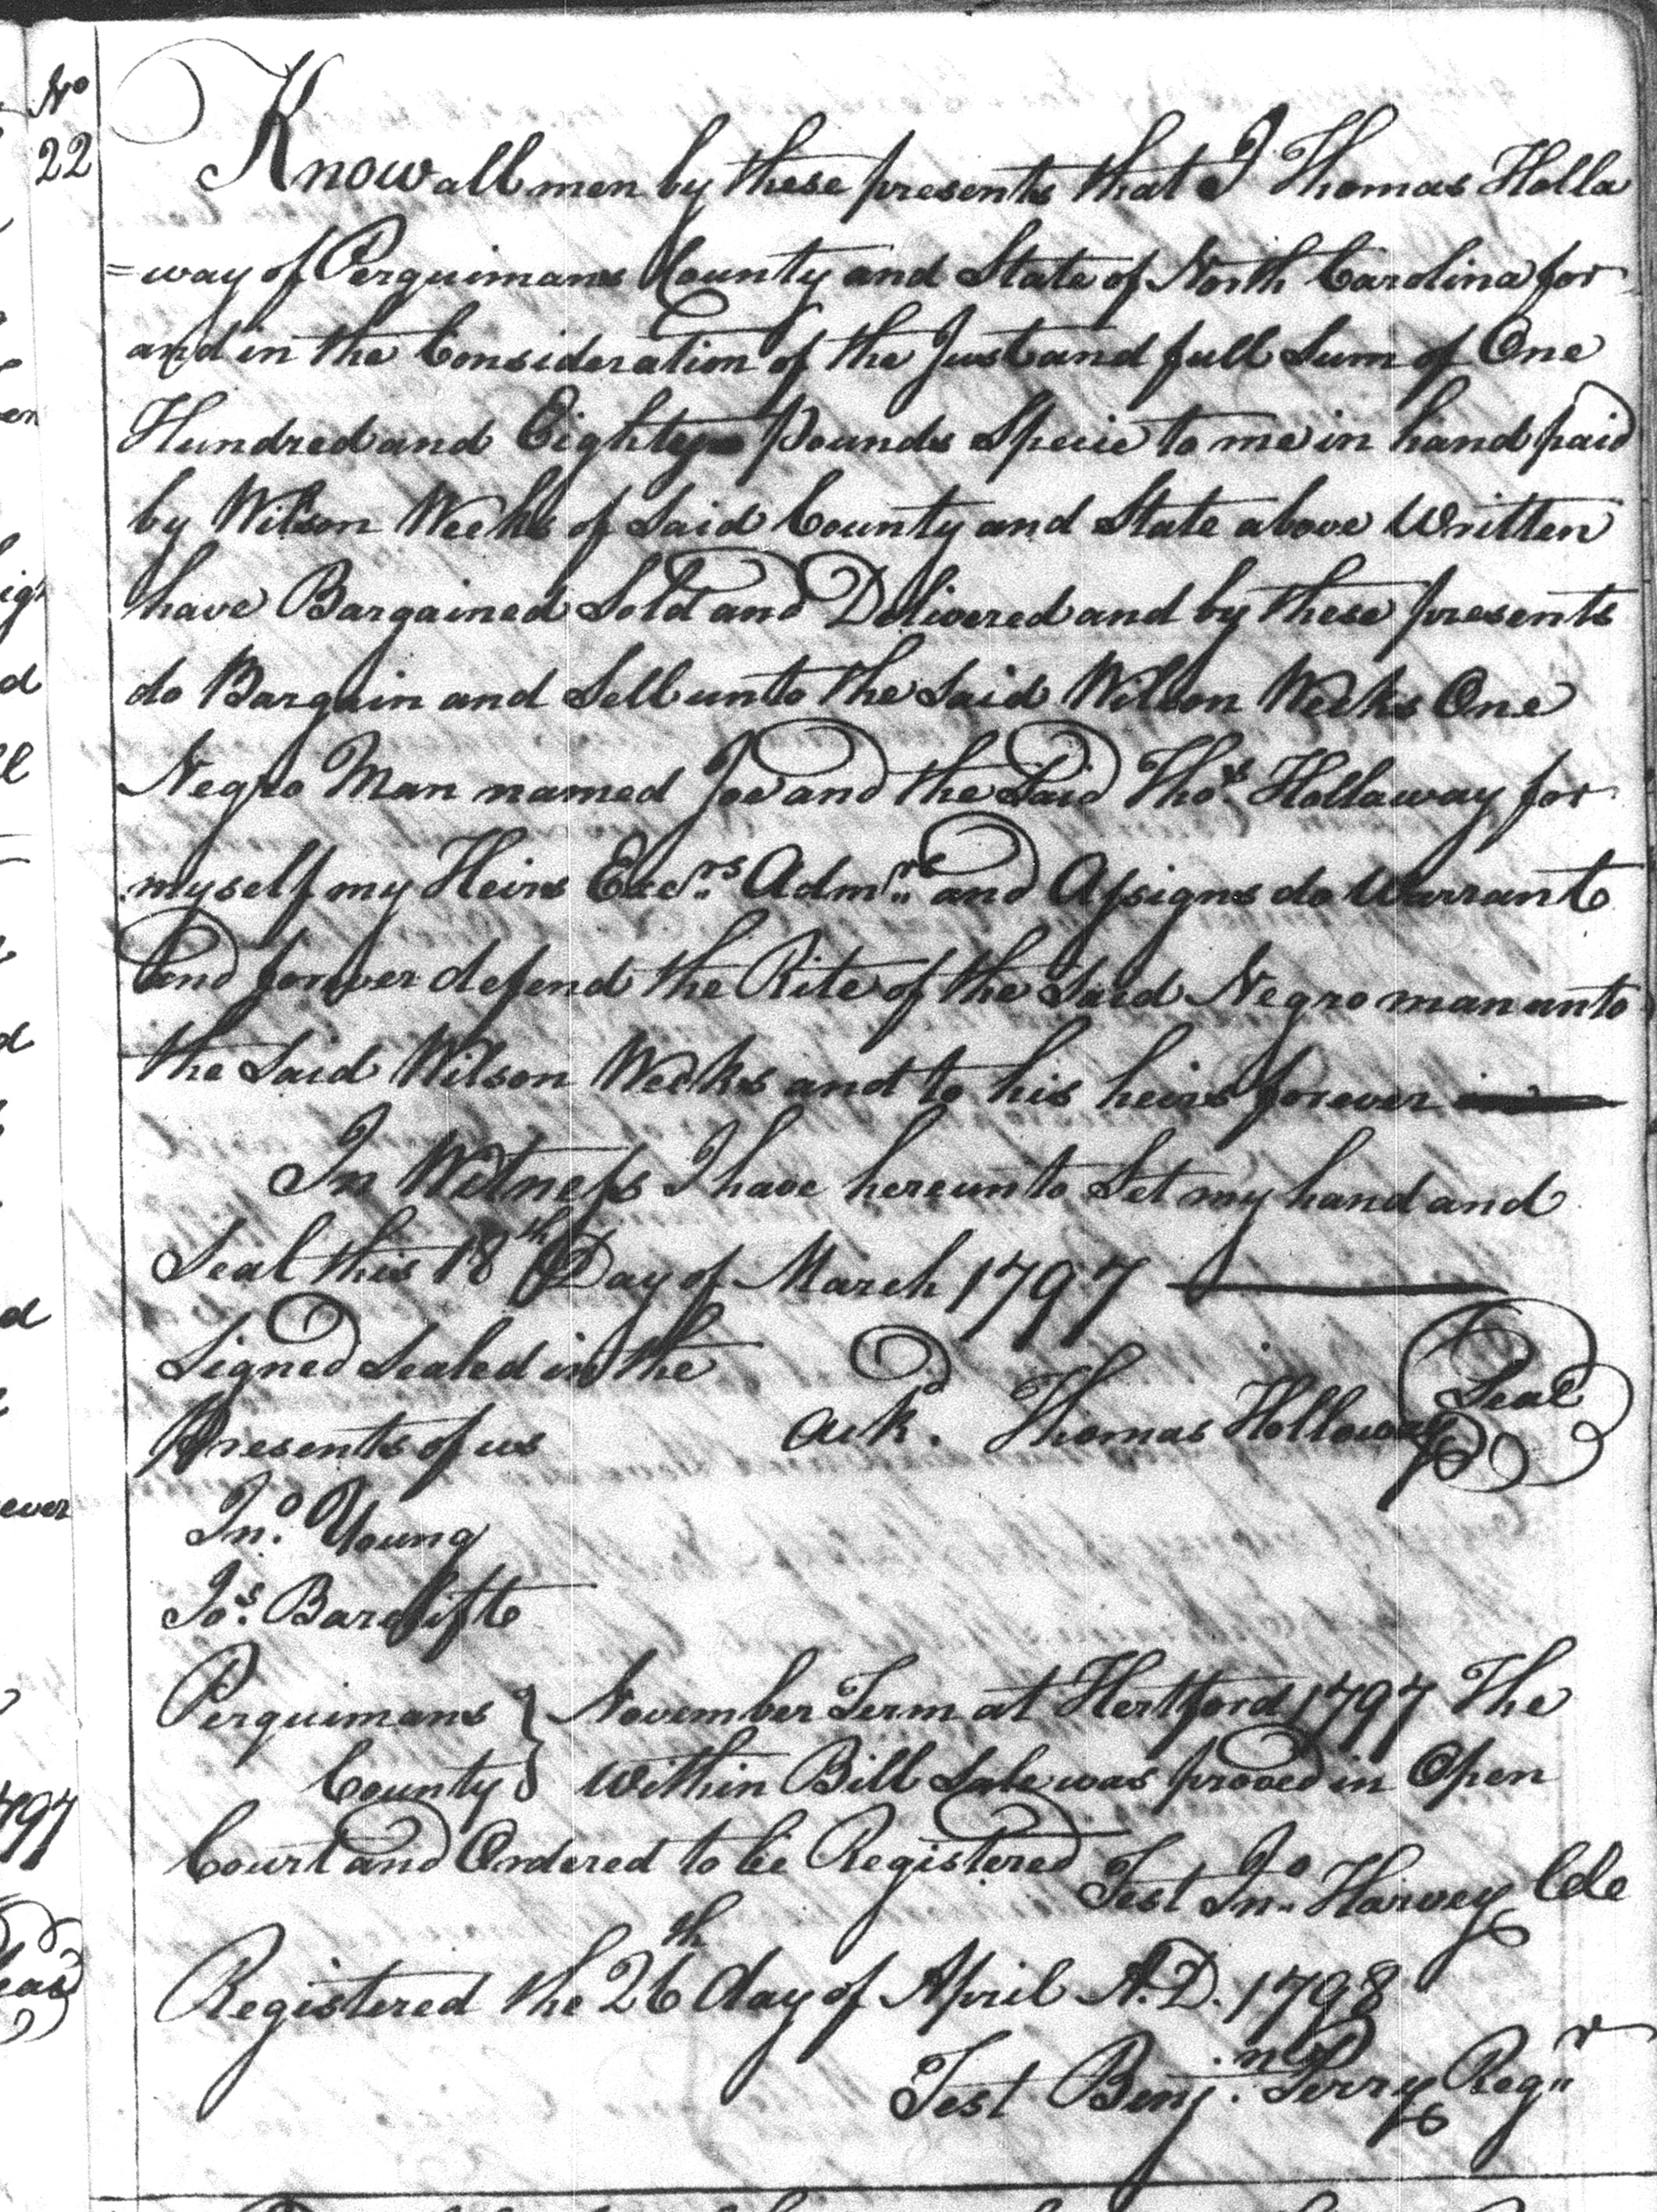 No
22
Know all men by these presents that I Thomas Holla
=way of Perquimans County and State of North Carolina for
and in the Consideration of the Just and full Sum of One
Hundred and Eighty Pounds Specie to me in hand paid
by Wilson Weeks of Said County and State above Written
have Bargained Sold and Delivered and by these presents
do Bargain and Sell unto the Said Wilson Weeks One
Negro Man named Joe and the Said Thos. Hollaway for
myself my Heirs Exe.rs Adm.rs and Assigns do Warrant
and forever defend the Rite of the Said Negro man unto
the Said Wilson Weeks and to his heirs forever
In Witness I have hereunto Set my hand and
Seal this 18th Day of March 1797
Signed Sealed in the
Presents of us
ack.d Thomas Holloway Seal
Jno. Young
Jos. Barclift
Perquimans } November Term at Hertford 1797 The
County } Within Bill Sale was proved in Open
Court and Ordered to be Registered
Test Jno. Harvey Cle
Registered the 26th day of April A.D. 1798
Test Benj.n Perry Reg.r